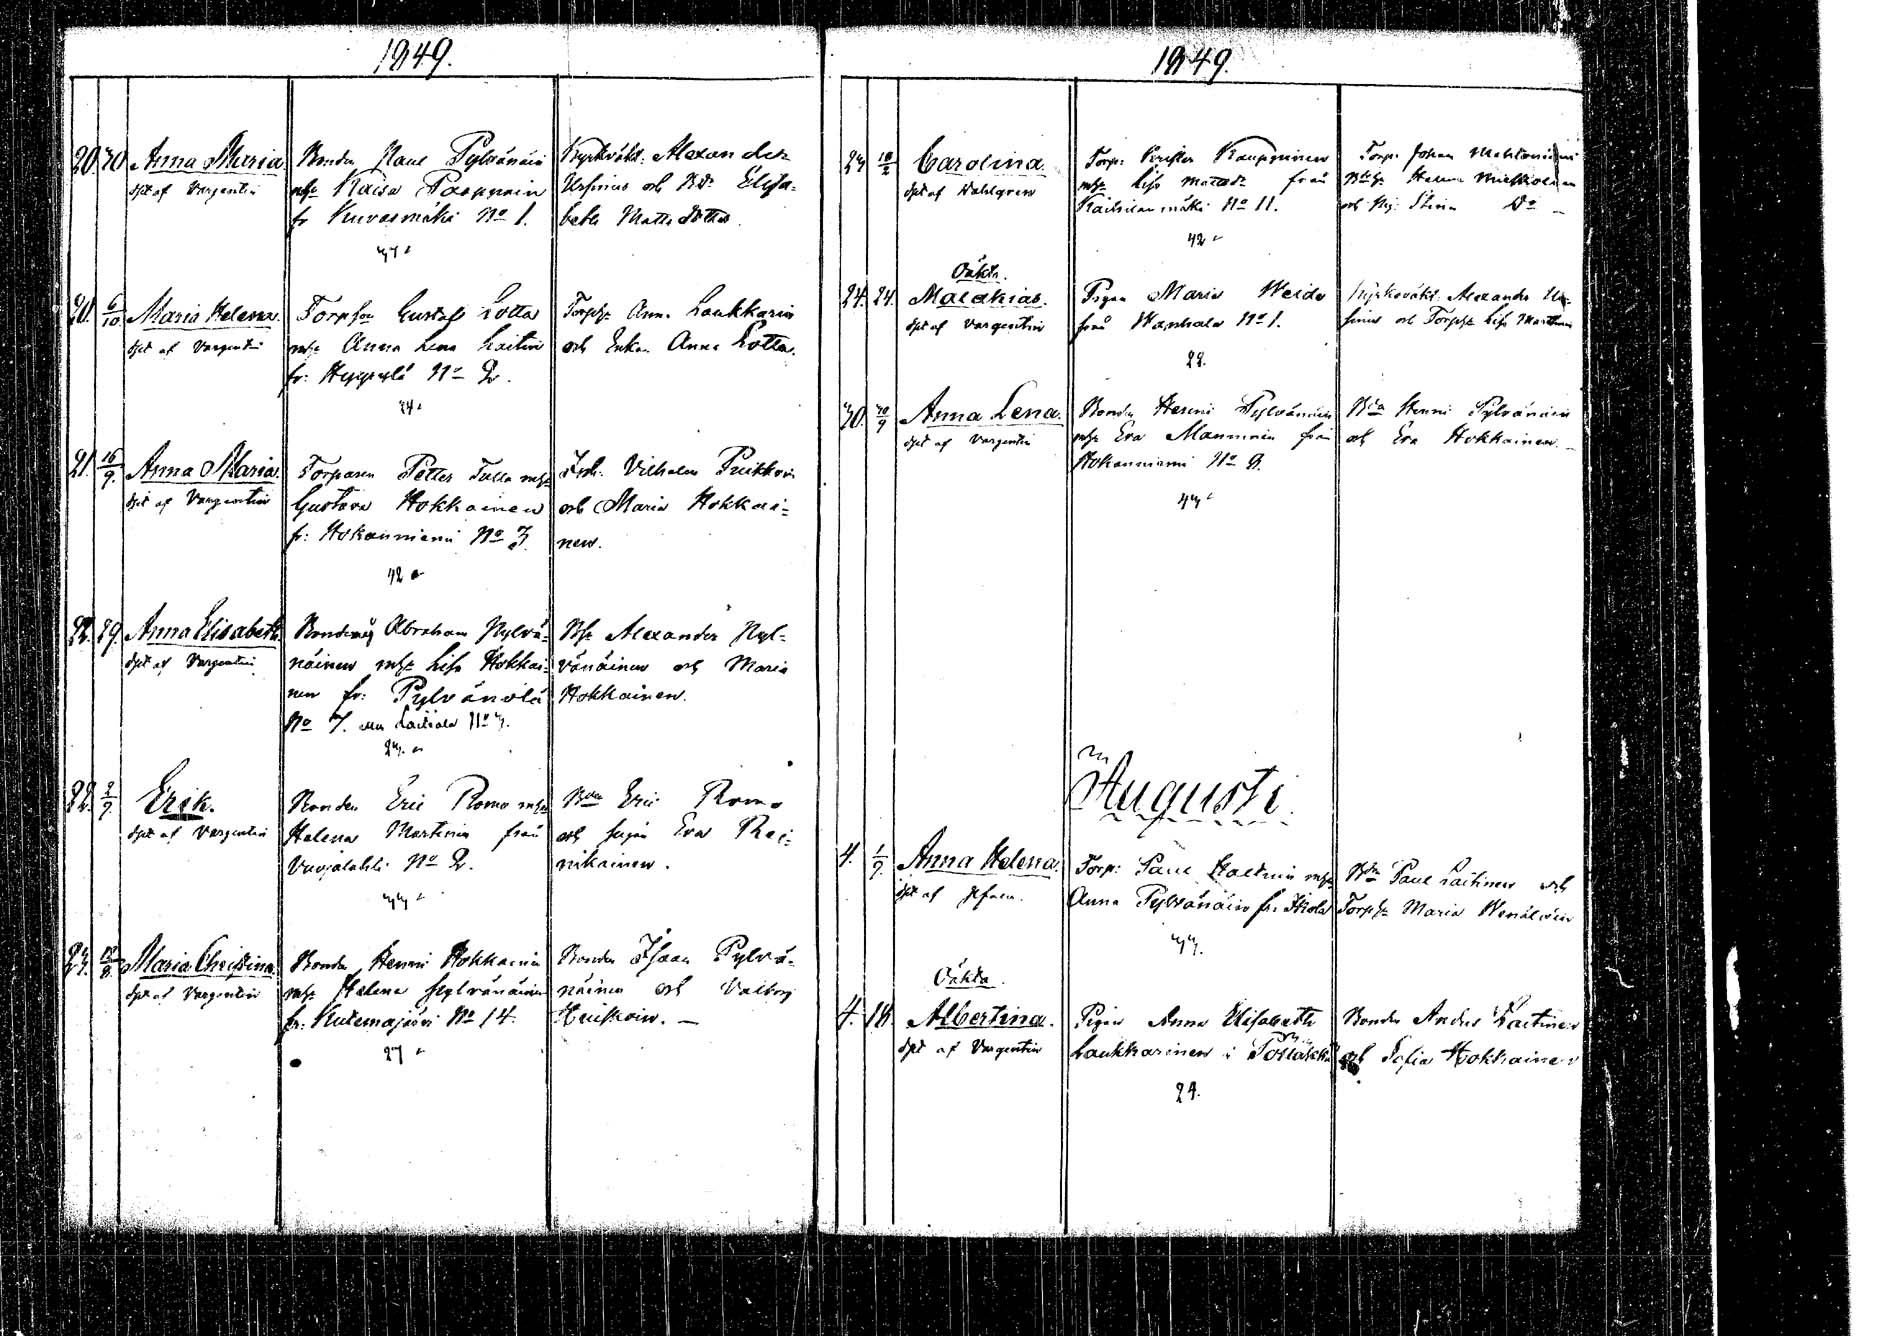 1849.
20. 30 Anna Maria
dpt af Vargentin
Bonden Paul Pylvänäin
mhu Kaisa Paappanin
fr Kuvasmäki No 1.
37
Kyrkväkt. Alexander
Ursinus och Bdr Elisa-
beth Matts dotter.
20. 6/10 Maria Helena.
dpt af Vargentin
Torpson Gustaf Lotta
mhu Anna Lena Laitin
fr: Heppylä No 2.
24
Torphu Anna Laukkarin
och Enkan Anna Lotta.
21. 16/9. Anna Maria.
dpt af Vargentin
Torparen Petter Tulla mhu
Gustava Hokkainen
fr: Hokanniemi No 3.
42
Vilhelm Pukkon
och Maria Hokkai-
nen.
22. 29. Anna Elisabeth
dpt af Vargentin
Bondemåg Abraham Pylvä-
näinen mhu Lisa Hokkai-
nen fr: Pylvänälä
No 7. Laitiala No 3.
23.
Alexander Pyl-
vänäinen och Maria
Hokkainen.
22. 2/9. Erik.
dpt af Vargentin
Bonden Eric Romo mhu
Helena Martinin från
Vuojalahti No 2.
33
Bdn Eric Romo
och pigan Eva Rei-
nikainen.
23. 12/8. Maria Christina
dpt af Vargentin
Bonden Henric Hokkanin
mhu Helena Pylvänäinen
fr: Kutemajärvi No 14.
27
Bonden Isaac Pylvä-
näinen och Valborg
Huiskoin. —
1849.
23 18/2 Carolina.
dpt af Wahlgren
Torp: Krister Kauppinen
mhu Lisa Mattsdr från
Kaitilanmäki No 11.
42
Torp: Johan
Helena
och Pig: Stina Do —
Oäkta.
24. 24. Malakias.
dpt af Vargentin
Pigan Maria Weide
från Wanhala No 1.
22.
Kyrkoväkt. Alexander Ur-
sinus och Torphu Lisa Marttinen
30. 30/9 Anna Lena.
dpt af Vargentin
Bonden Henric Pylvänäinen
mhu Eva Manninen från
Hokanniemi No 8.
43
Bdn Henric Pylvänäin
och Eva Hokkainen. —
Augusti.
4. 1/9. Anna Helena.
dpt af
Torp: Paul Haltuin mhu
Anna Pylvänäin fr. Ikola
33.
Bdn Paul Laitinen och
Torphu Maria Wenäläin
Oäkta.
4. 18. Albertina.
dpt af Vargentin
Pigan Anna Elisabeth
Laukkarinen i
24.
Bonden Anders Laitinen
och Sofia Hokkainen